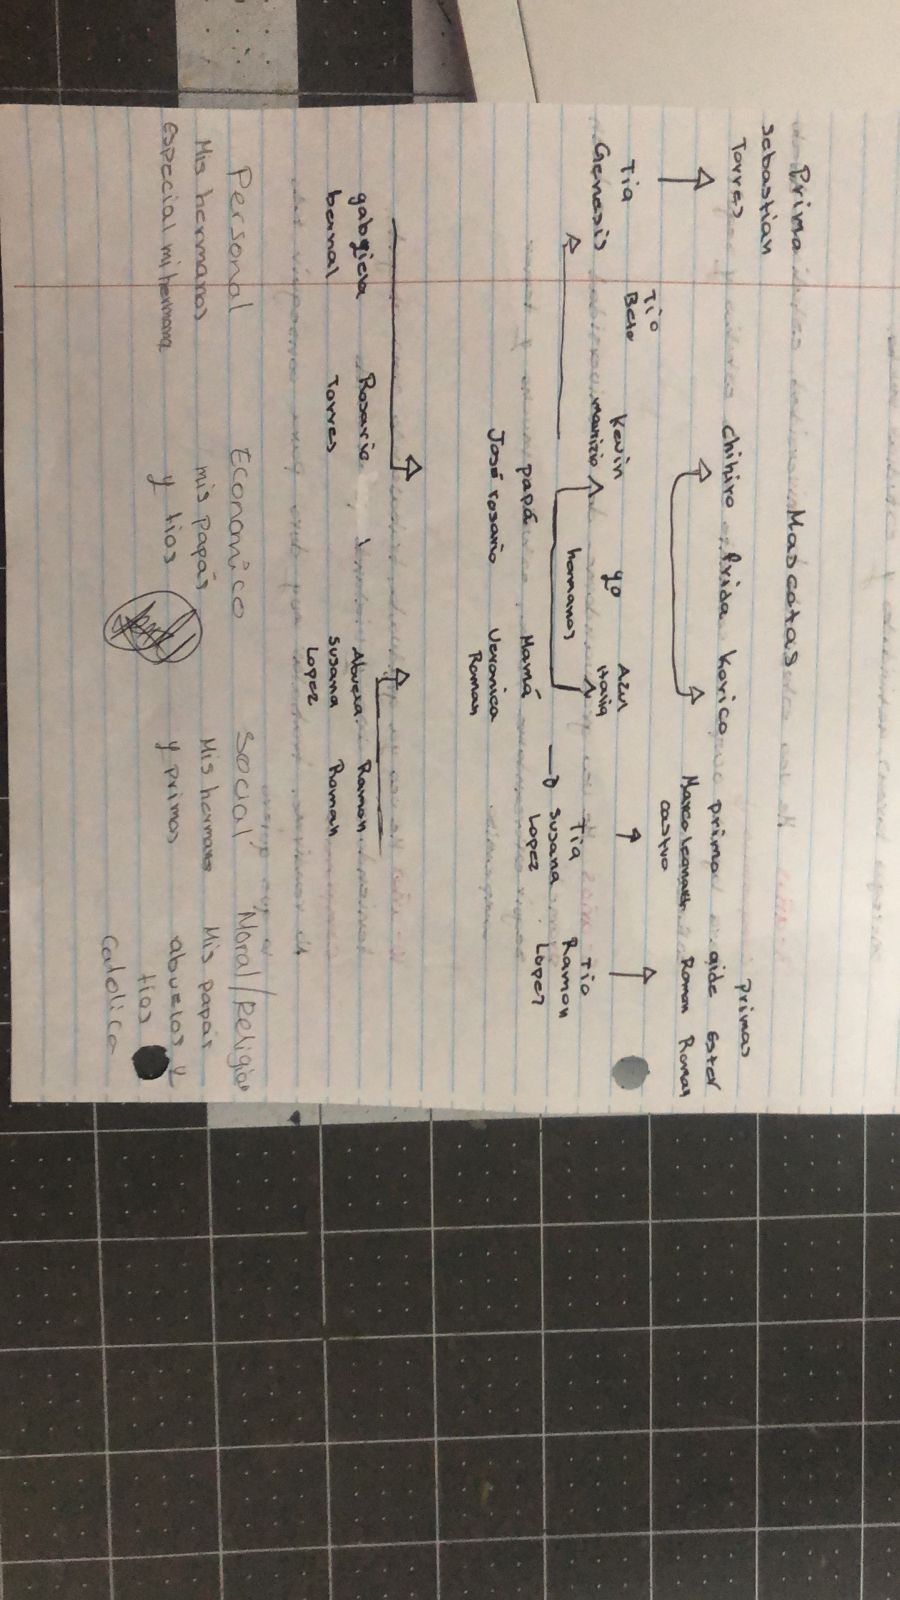 Primo Mascotas
Sebastian primas
Torres chihiro frida korico primo aide Ester
Marco Leonardo Roman Roman
Castro
Tio
Tia Beto Kevin yo Azul Tio
Genesis mauricio Tia Ramon
hermanos Susana Lopez
papá Mamá Lopez
José rosario Veronica
Roman
gabriela Rosario Abuela Ramon
bernal Torres Susana Roman
Lopez
Personal Economico Social Moral/Religion
Mis hermanos mis papás Mis hermanos Mis papás
Especial mi hermana y tios y primos abuelos y
tios
Catolica